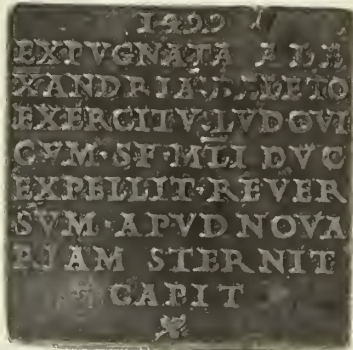 1499
EXPVGNATA ALE
XANDRIA·DELETO
EXERCITV·LVDOVI
CVM·SF·MLI DVC
EXPELLIT·REVER
SVM·APVD NOVA
RIAM STERNIT
CAPIT